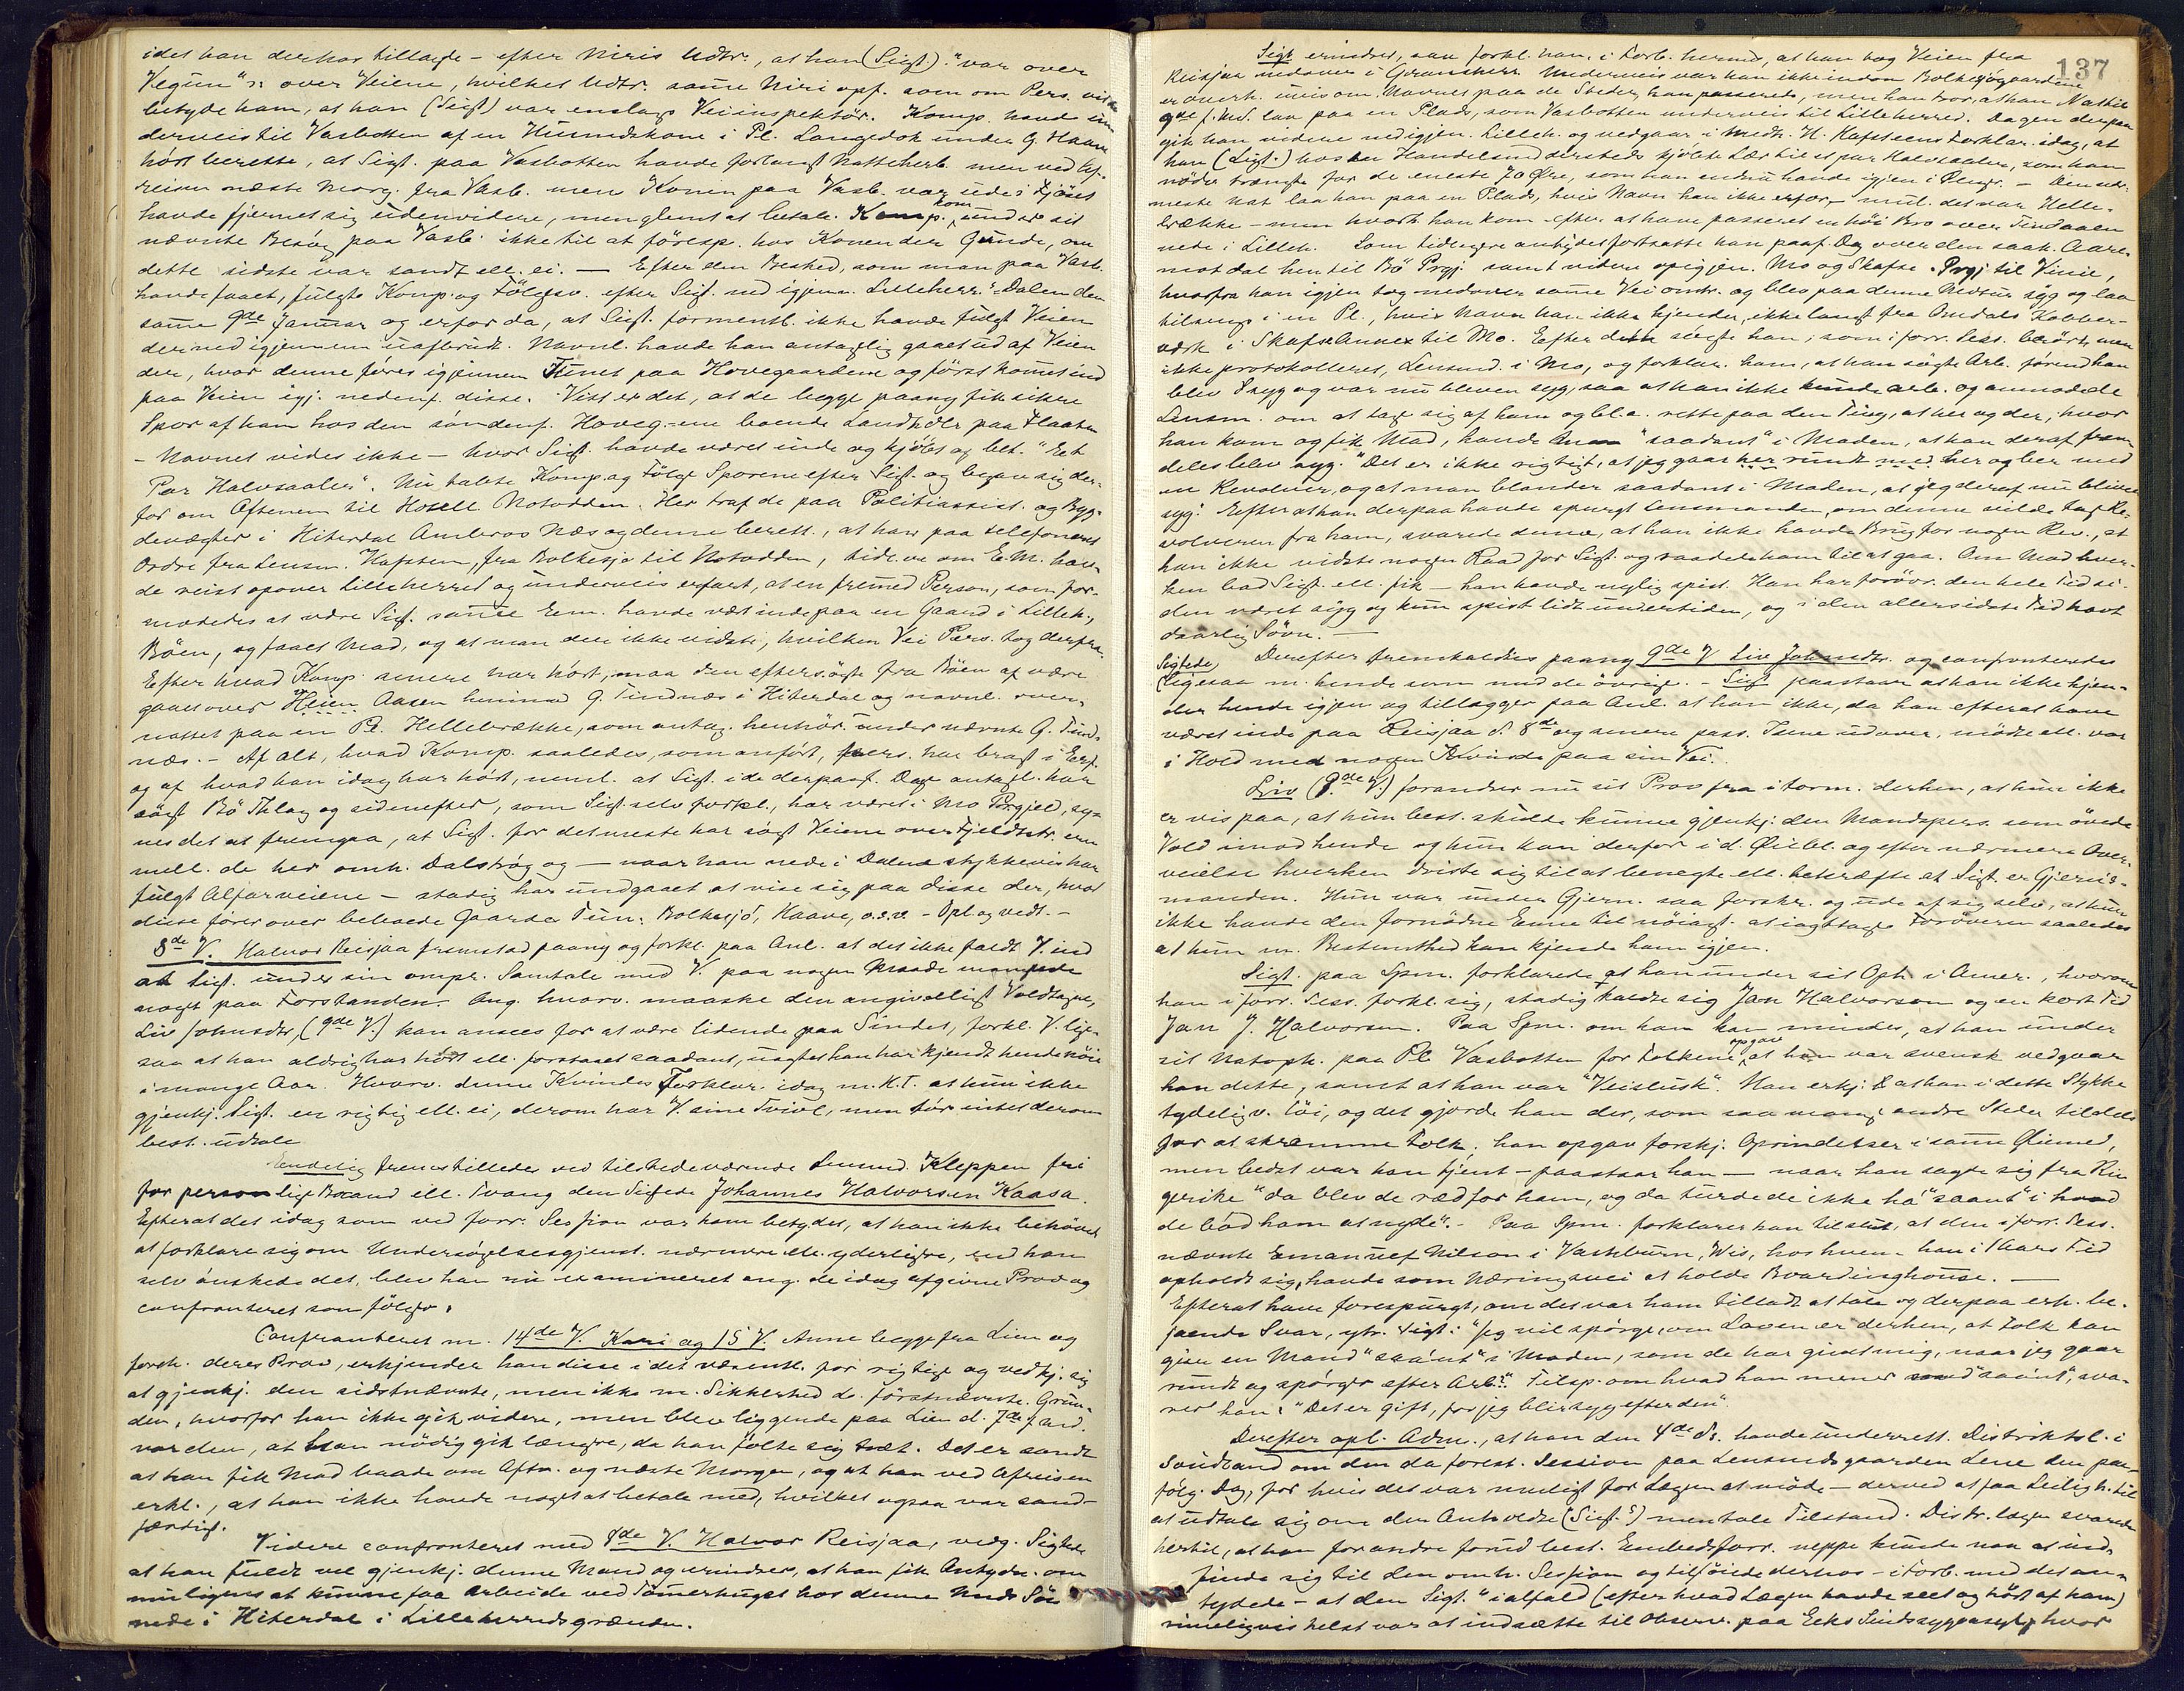 idet han derhos tillagde – efter Niris Udtr., at han (Sigt) "var over
Vegun" ɔ: over Veiene, hvilket Udtr. samme Niri opf. som om Pers. vilde
betyde ham, at han (Sigt) var enslags Veiinspektør. Komp. havde un-
derveis til Vasbotten af en Husmdskone i Pl. Langedok under G. Haave
hört berette, at Sigt. paa Vasbotten havde forlangt Natteherb. men ved Af-
reisen næste Morg. fra Vasb. men Konen paa Vasb. var ude i Fjöset
havde fjernet sig udenvidere, men glemt at betale. Komp. kom under sit
nævnte Besög paa Vasb. ikke til at föresp. hos Konen der Gunde, om
dette sidste var sandt ell. ei. — Efter den Besked, som man paa Vasb.
havde faaet, fulgte Komp. og Fölgesv. efter Sigt. ned igjenn. Lilleherr. Dalen den
samme 9de Januar og erfor da, at Sigt. formentl. ikke havde fulgt Veien
derned igjennem uafbrudt. Navnl. havde han antagelig gaaet ud af Veien
der, hvor denne föres igjennem Tunet paa Hovegaardene og först kommet ind
paa Veien igj. nedenf. disse. Vist er det, at de begge paany fik sikre
Spor af ham hos den söndenf. Hoveg-ene boende Landhdlr paa Flaaten
– Navnet vides ikke – hvor Sigt. havde været inde og kjöbt og bet. "Et
Par Halvsaaler". Nu tabte Komp. og Fölge Sporene efter Sigt. og begav sig der-
for om Aftenen til Hotell Notodden. Her traf de paa Politiassist. og Byg-
devægter i Hiterdal Ambros Næs og denne berett., at han paa telefoneret
Ordre fra Lensm. Hafsten, fra Bolkesjö til Notodden, tidl. ve om E.M. hav-
de reist opover Lilleherred og underveis erfaret, at en fremed Person, som for-
modedes at være Sigt. samme Em. havde vært inde paa en Gaard i Lilleh.,
Böen, og faaet Mad, og at man der ikke vidste, hvilken Vei Pers. tog derfra.
Efter hvad Komp. senere har hört, maa den eftersögte fra Böen af være
gaaet over Heien Aasen henimod G. Tindnæs i Hiterdal og navnl. over-
nattet paa en Pl. Hellebrække, som antag. henhör. under nævnte G. Tind-
næs. – Af alt, hvad Komp. saaledes, som anfört, pers. har bragt i Erf.
og af hvad han idag har hört, neml. at Sigt. i de derpaaf. Dage antagel. har
sögt Bö Thlag og sidenefter, som Sigt. selv forkl., har været i Mo Prgjeld, sy-
nes det at fremgaa, at Sigt. for det meste har sögt Veiene over Fjeldstr. ene
mell. de her omh. Dalströg og — naar han nede i Dalene stykkevis har
fulgt Alfarveiene – stadig har undgaaet at vise sig paa disse der, hvor
disse förer over beboede Gaardes Tun: Bolkesjö, Haave, o.s.v. – Opl. og vedt. –
8de V. Halvor Reisjaa fremstod paany og forkl. paa Anl. at det ikke faldt V. ind
at Sigt. under sin ompr. Samtale med V. paa nogen Maade manglede
noget paa Forstanden. Ang. hvorv. maaske den angivelligt Voldtagne,
Liv Johnsdtr, (9de V.) kan ansees for at være lidende paa Sindet, forkl. V. lige-
saa at han aldrig har hört ell. forstaaet saadant, uagtet han har kjendt hende nöie
i mange Aar. Hvorv. denne Kvindes Forklar. idag m. K.T. at hun ikke
gjenkj. Sigt. er rigtig ell. ei, derom har V. sine Tvivl, men tör intet derom
best. udtale
Endelig fremstilledes ved tilstedeværende Lensmd. Kleppen fri
for personligt Baand ell. Tvang den Sigtede Johannes Halvorsen Kaasa.
Efterat det idag som ved forr. Session var ham betydet, at han ikke behövet
at forklare sig om Undersögelsesgjenst. nærmere ell. yderligere, end han
selv önskede det, blev han nu examineret ang. de idag afgivne Prov og
confronteret som fölger:
Confronteret m. 14de V. Kari og 15 V. Anne begge fra Lien og
foreh. deres Prov, erkjender han disse i det væsentl. for rigtige og vedkj. sig
at gjenkj. den sidstnævnte, men ikke m. Sikkerhed d. förstnævnte. Grun-
den, hvorfor han ikke gik videre, men blev liggende paa Lien d. 7de f. md.
var den, at han nödig gik længre, da han fölte sig træt. Det er sandt
at han fik Mad baade om Aftn. og næste Morgen, og at han ved Afreisen
erkl., at han ikke havde noget at betale med, hvilket ogsaa var sand-
færdigt.
Videre confronteret med 8de V. Halvor Reisjaa, vedg. Sigtede
at han fuldt vel gjenkj. denne Mand og erindrer, at han fik Antydn. om
muligens at kunne faa Arbeide ved Tömerhugst hos denne
nede i Hiterdal i Lilleherredsgrænden.
137
Sigt. erindret, saa forkl. han, i Forb. hermd, at han tog Veien fra
Reisjaa nedover i Granshers. Underveis var han ikke indom Bolkesjögaardene
er overh. uvis om Navnet paa de Steder, han passerede, men han tror, at han Nat til
9de f. Md. laa paa en Plads, som Vasbotten underveis til Lilleherred. Dagen derpaa
gik han videre ned igjen. Lilleh. og vedgaar i Medh. H. Hafsteens Forklar. idag, at
han (Sigt.) hos en Handelsmd dersteds kjöbte Lær til et par Halvsaaler, som han
nöder trængte for de eneste 70 Øre, som han endnu havde igjen i Penge. – Den næst-
neste Nat laa han paa en Plads, hvis Navn han ikke erfor, – mul. det var Helle-
brække – men hvorh. han kom efter at have passeret en höi Bro over Tindaaen
nede i Lilleh. Som tidligere antydet fortsatte han paaf. Dag over den saak. Aare-
mot dal hen til Bö Prgj. samt videre opigjen. Mo og Skafse Prgj. til Vinie,
hvorfra han igjen tog nedover samme Vei omtr. og blev paa denne Nedtur syg og laa
tilsengs i en Pl., hvis Navn han ikke kjender, ikke langt fra Omdals Kobber-
værk i Skafse Annex til Mo. Efter dette sögte han, som i forr. Sess. berört, men
ikke protokolleret, Lensmd. i Mo, og forklar. ham, at han sögte Arb. förend han
blev Syg og var nu bleven syg, saa at han ikke kunde arb. og anmodede
Lensm. om at tage sig af ham og bl.a. rette paa den Ting, at her og der, hvor
han kom og fik Mad, havde man "saadant" i Maden, at han deraf frem-
deles blev syg. "Det er ikke rigtigt, at jeg gaar her rundt med her og ber med
en Revolver, og at man blander saadant i Maden, at jeg deraf nu bliver
syg." Efter at han derpaa havde spurgt Lensmanden, om denne vilde tage Re-
volveren fra ham, svarede denne, at han ikke havde Brug for nogen Rev., at
han ikke vidste nogen Raad for Sigt. og raadede ham til at gaa. Om Mad hver-
ken bad Sigt. ell. fik – han havde nylig spist. Han har forövr. den hele Tid si-
den været syg og kun spist lidt undertiden, og i den allersidste Tid havt
daarlig Sövn. —
Sigtede, Derefter fremkaldtes paany 9de V. Liv Johnsdtr. og confronteredes
ligesaa m. hende som med de övrige. – Sigt. paastaar at han ikke kjen-
der hende igjen og tillægger paa Anl. at han ikke, da han efterat have
været inde paa Reisjaa d. 8de og senere pass. Tune udover, mödte ell. var
i Hold med nogen Kvinde paa sin Vei.
Liv (9de V.) forandrer nu sit Prov fra iform. derhen, at hun ikke
er vis paa, at hun best. skulde kunne gjenkj. den Mandspers. som övede
Vold imod hende og hun kan derfor i d. Øiebl. og efter nærmere Over-
veielse hverken driste sig til at benegte ell. bekræfte at Sigt. er Gjernings-
manden. Hun var under Gjern. saa forskr. og ude af sig selv, at hun
ikke havde den fornödne Evne til nöiagt. at iagttage Foröveren saaledes
at hun m. Bestemthed kan kjende ham igjen.
Sigt. paa Spm. forklarede, at han under sit Oph. i Amer., hvorom
han i forr. Sess. forkl. sig, stadig kaldte sig Jan Halvorson og en kort Tid
Jan J. Halvorsen. Paa Spm. om han kan mindes, at han under
sit Natoph. paa Pl. Vasbotten for Folkene opgav at han var svensk vedgaar
han dette, samt at han var "Veislusk". Han erkj. at han i dette Stykke
tydeligv. löi, og det gjorde han der, som saa mange andre Steder tildels
for at skræmme Folk; han opgav forskj. Oprindelser i samme Øiemed,
men bedst var han tjent – paastaar han — naar han sagde sig fra Rin-
gerike "da blev de ræd for ham, og da turde de ikke ha "saant" i hvad
de böd ham at nyde". – Paa Spm. forklarer han tilslut, at den i forr. Sess.
nævnte Emanuel Nilson i Vashburn, Wis, hos hvem han i 1 Aars Tid
opholdt sig, havde som Næringsvei at holde Boardinghouse. —
Efterat have forespurgt, om det var ham tilladt at tale og derpaa erh. be-
jaende Svar, ytr. Sigt: "Jeg vil spörge, om Loven er derhen, at Folk kan
give en Mand "saánt" i Maden, som de har givet mig, naar jeg gaar
rundt og spörger efter Arb.". Tilsp. om hvad han mener med "saánt", sva-
rer han: "Det er gift, for jeg blir syg efter den".
Derefter opl. Adm., at han den 4de ds. havde underrett. Distriktsl. i
Saudland om den da forest. Session paa Lensmdsgaarden Lene den paa-
fölg. Dag, for hvis det var muligt for Lægen at möde – derved at faa Leiligh. til
at udtale sig om den Anholdte (Sigt.s) mentale Tilstand. Distr. lægen svarede
hertil, at han for andre forud best. Embedsforr. neppe kunde naa at ind-
finde sig til den omh. Session og tilföiede derhos – i Forb. med det an-
tydede – at den Sigt. "ialfald (efter hvad Lægen havde seet og hört af ham)
rimeligvis helst var at indsætte til Observ. paa Eeks Sindssygeasyl, hvor